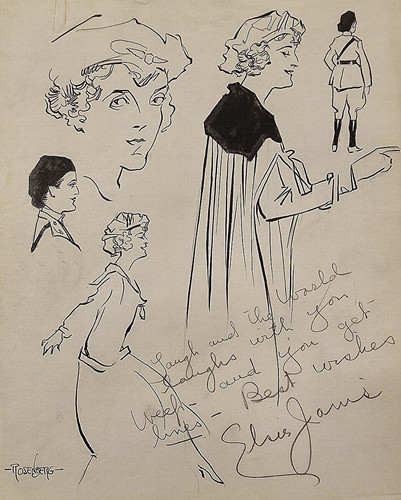 Laugh and The World
laughs with you
Weep - and you get
lines - Best wishes
Elsie Janis
-ROSENBERG-